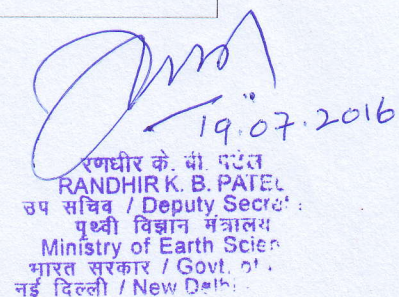 19.07.2016
रणधीर के. बी. पटेल
RANDHIR K. B. PATEL
उप सचिव / Deputy
पृथ्वी विज्ञान मंत्रालय
Ministry of Earth
भारत सरकार / Govt. of
नई दिल्ली / New Delhi